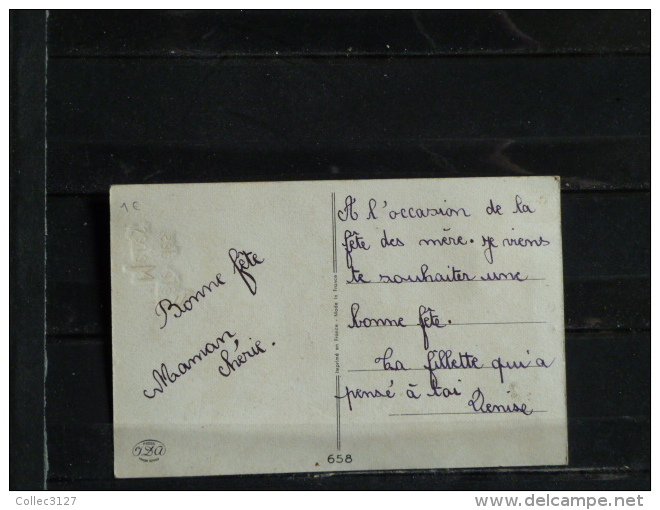 1 €
Bonne fête
Maman
chérie.
A l'occasion de la
fête des mère. je viens
te souhaiter une
bonne fête.
La fillette qui a
pensé à toi
Denise
Imprimé en France - Made in France
658
Collec3127
delcampe.net